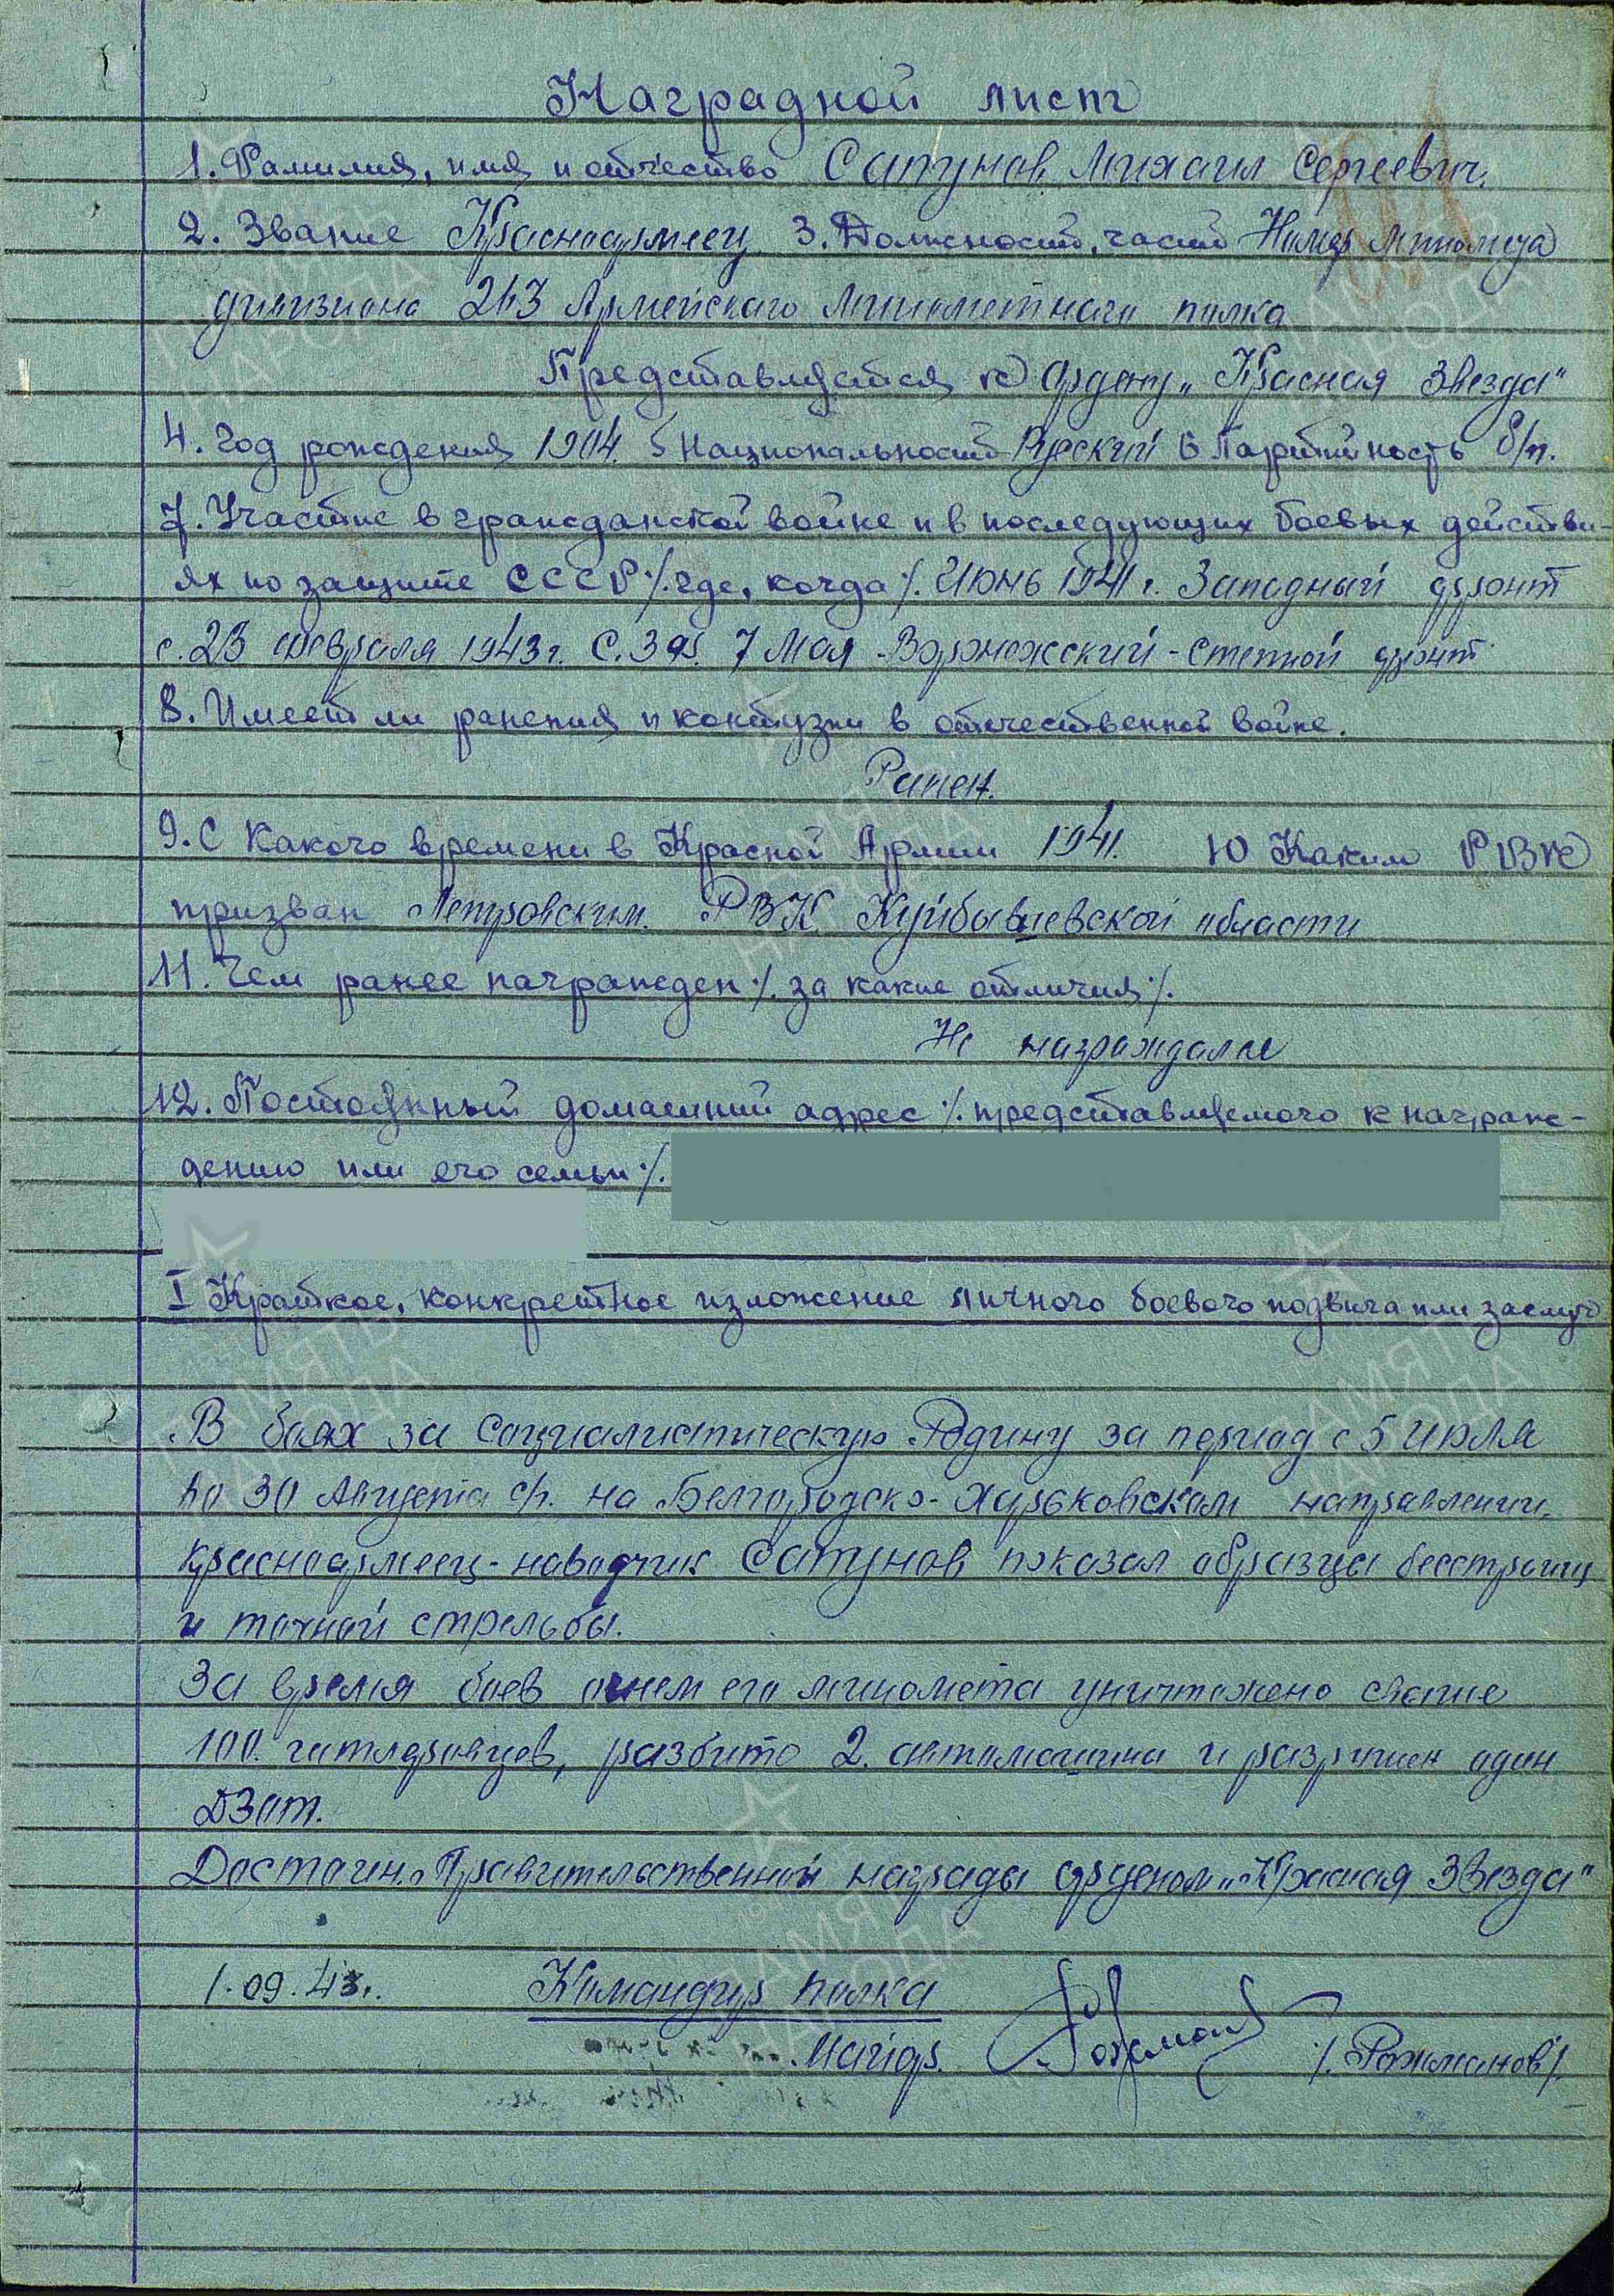 Наградной лист
1. Фамилия, имя и отчество Сапунов Михаил Сергеевич.
2. Звание Красноармеец 3. Должность, часть Номер миномета
дивизиона 263 Армейского Минометного полка
Представляется к Ордену „Красная Звезда"
4. Год рождения 1904. 5 Национальность Русский 6 Партийность б/п.
7. Участие в гражданской войне и в последующих боевых действи-
ях по защите СССР ⁒ где, когда ⁒ Июнь 1941 г. Западный фронт
с 23 февраля 1943 г. С.З ф. 7 Мая Воронежский - Степной фронт
8. Имеет ли ранения и контузии в отечественной войне.
Ранен.
9. С какого времени в Красной Армии 1941. 10 Каким РВК
призван Петровским РВК Куйбышевской области
11. Чем ранее награжден ⁒ за какие отличия ⁒
Не награждался
12. Постоянный домашний адрес ⁒ представляемого к награж-
дению или его семьи ⁒
I Краткое, конкретное изложение личного боевого подвига или заслуг
В боях за Социалистическую Родину за период с 5 июля
по 30 Августа с/г. на Белгородско-Харьковском направлении,
красноармеец-наводчик Сапунов показал образцы бесстрашия
и точной стрельбы.
За время боев огнем его миномета уничтожено свыше
100 гитлеровцев, разбито 2 автомашины и разрушен один
ДЗОТ.
Достоин Правительственной награды орденом „Красная Звезда"
1.09.43г. Командир полка
Майор ⁒ Рожманов ⁒
ПАМЯТЬ НАРОДА